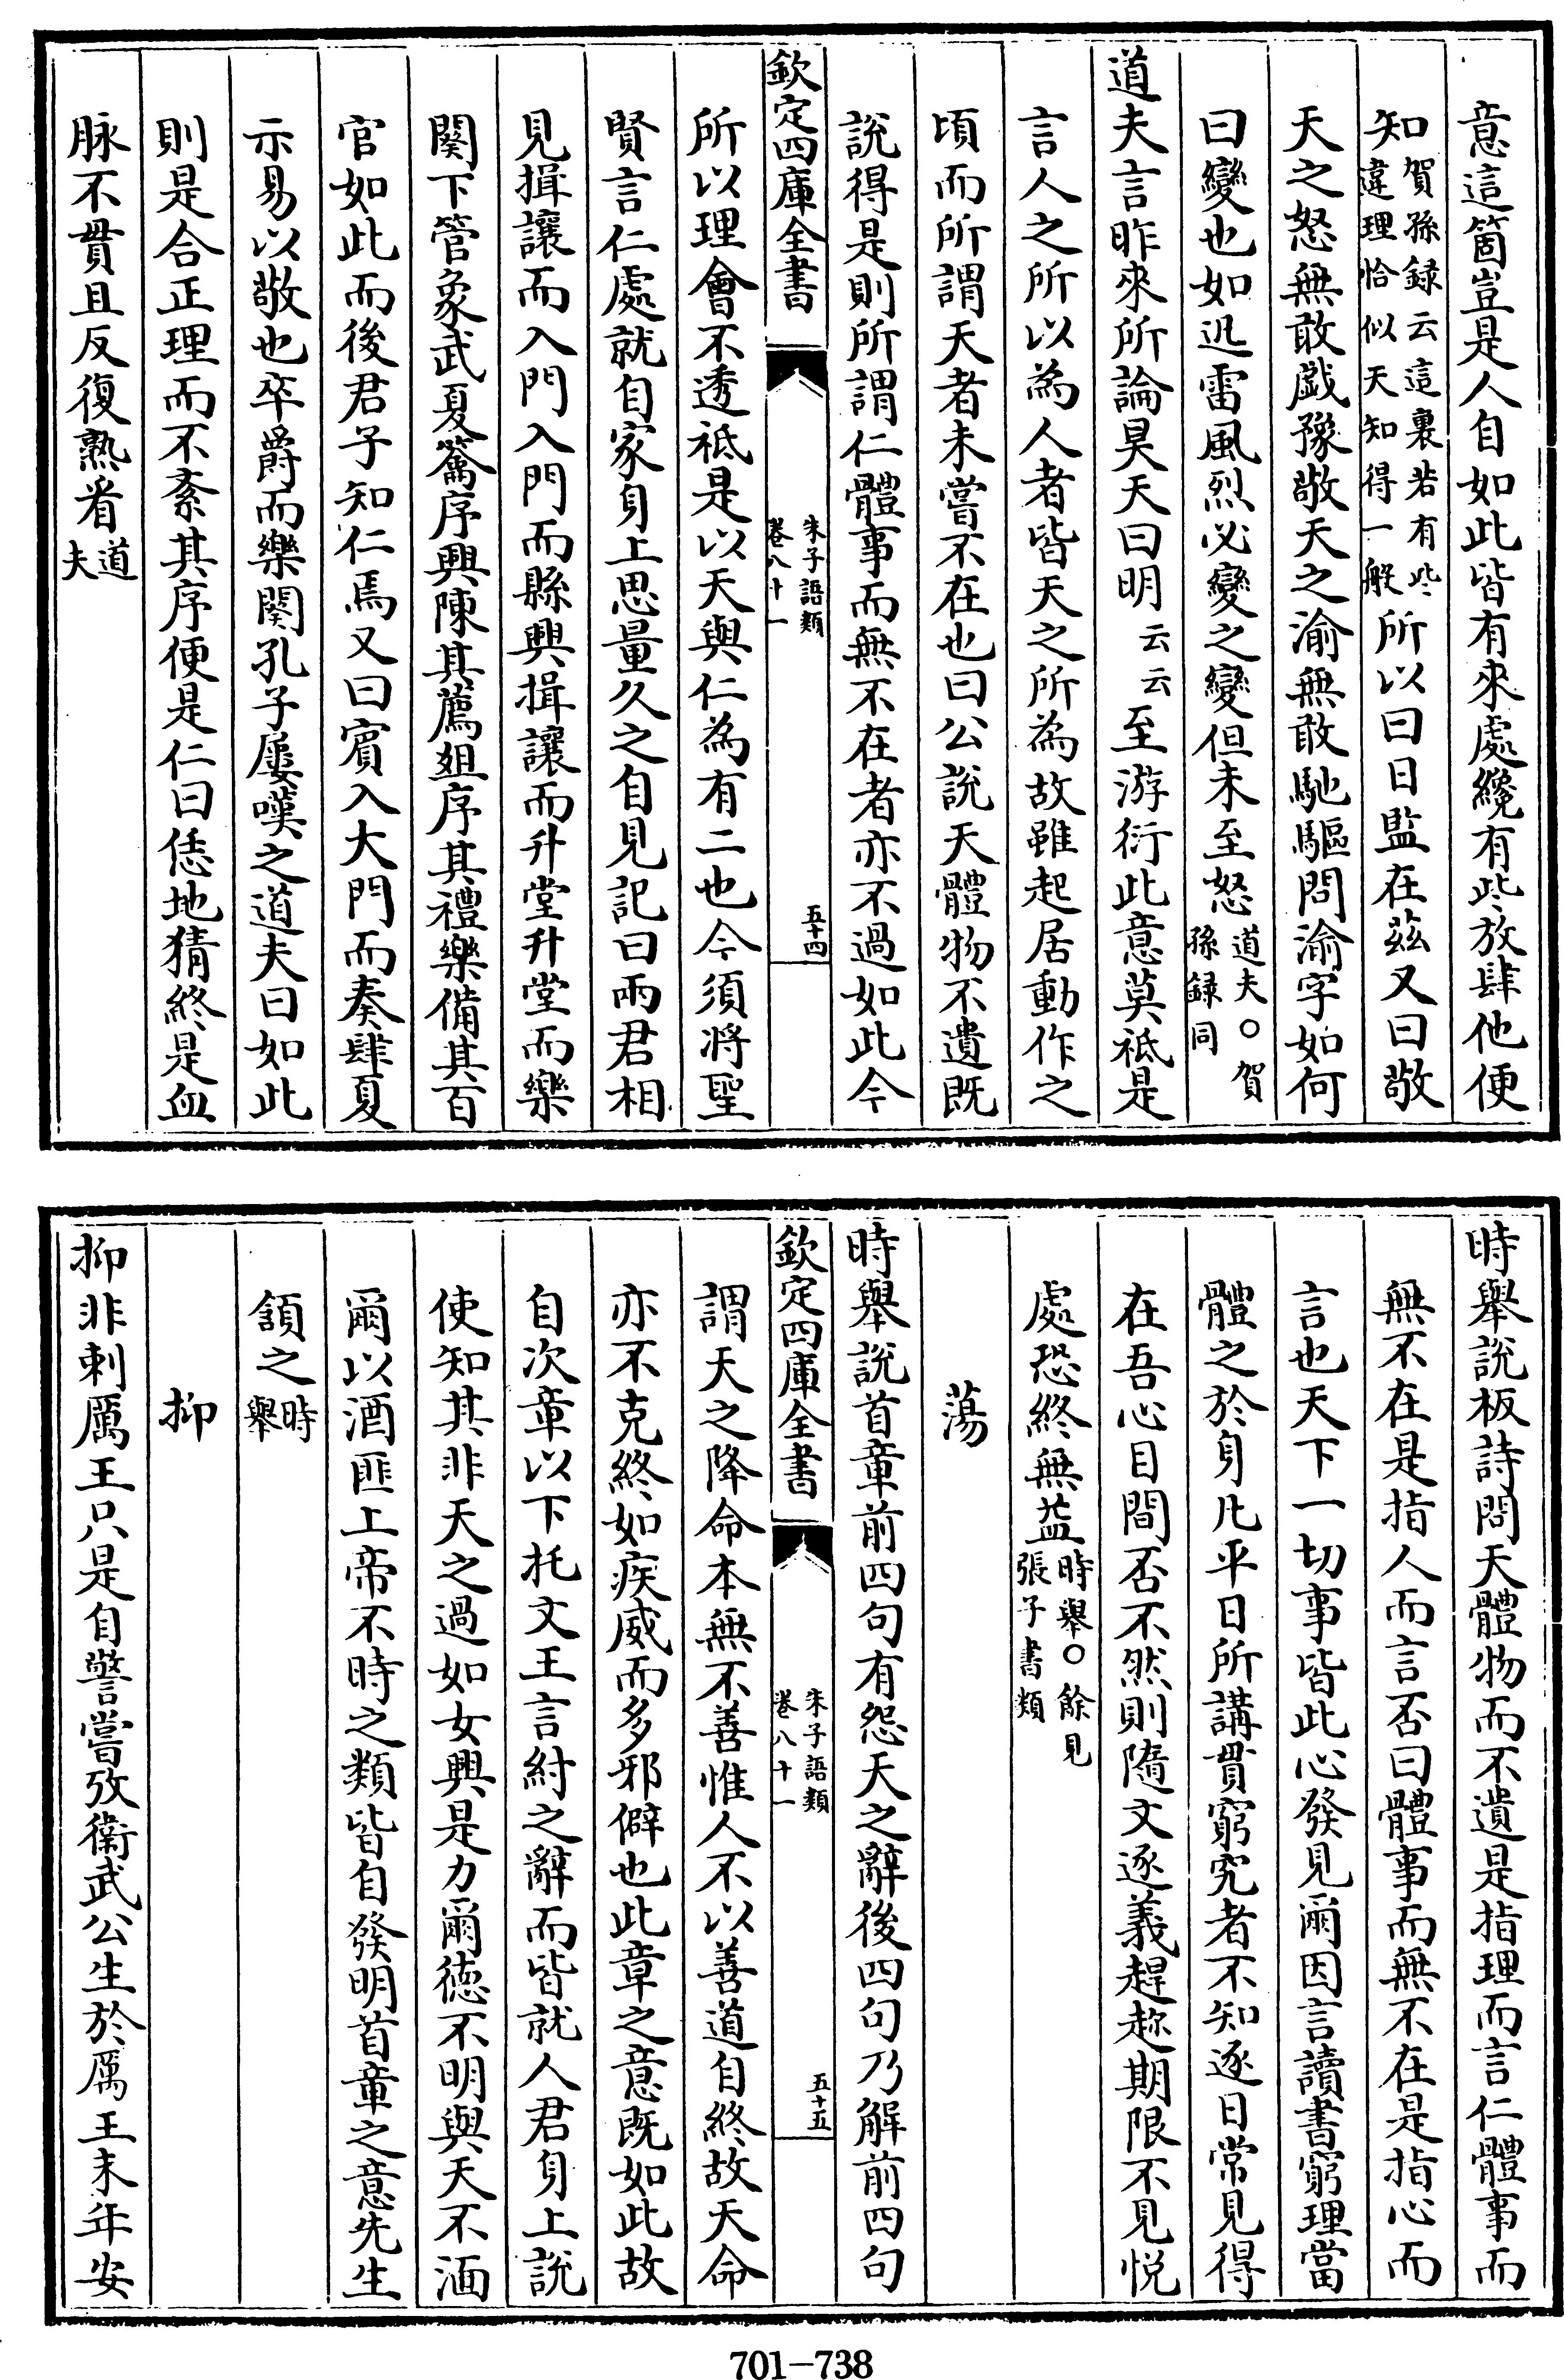 意這箇豈是人自如此皆有來處纔有些放肆他便
知賀孫録云這裏若有些違理恰似天知得一般所以曰日監在茲又曰敬
天之怒無敢戯豫敬天之渝無敢馳驅問渝字如何
曰變也如迅雷風烈必變之變但未至怒道夫○賀孫録同
道夫言昨來所論昊天曰明云云至游衍此意莫祗是
言人之所以為人者皆天之所為故雖起居動作之
頃而所謂天者未嘗不在也曰公說天體物不遺既
說得是則所謂仁體事而無不在者亦不過如此今
欽定四庫全書
朱子語類
卷八十一
五十四
所以理會不透祗是以天與仁為有二也今須將聖
賢言仁處就自家身上思量久之自見記曰兩君相
見揖讓而入門入門而縣興揖讓而升堂升堂而樂
闋下管象武夏籥序興陳其薦俎序其禮樂備其百
官如此而後君子知仁焉又曰賓入大門而奏肆夏
示易以敬也卒爵而樂闋孔子屢嘆之道夫曰如此
則是合正理而不紊其序便是仁曰恁地猜終是血
脉不貫且反復熟看道夫
時舉說板詩問天體物而不遺是指理而言仁體事而
無不在是指人而言否曰體事而無不在是指心而
言也天下一切事皆此心發見爾因言讀書窮理當
體之於身凡平日所講貫窮究者不知逐日常見得
在吾心目間否不然則隨文逐義趕趂期限不見悦
處恐終無益時舉○餘見張子書類
蕩
時舉說首章前四句有怨天之辭後四句乃解前四句
欽定四庫全書
朱子語類
卷八十一
五十五
謂天之降命本無不善惟人不以善道自終故天命
亦不克終如疾威而多邪僻也此章之意既如此故
自次章以下托文王言紂之辭而皆就人君身上說
使知其非天之過如女興是力爾德不明與天不湎
爾以酒匪上帝不時之類皆自發明首章之意先生
頷之時舉
抑
抑非刺厲王只是自警嘗攷衛武公生於厲王末年安
701-738